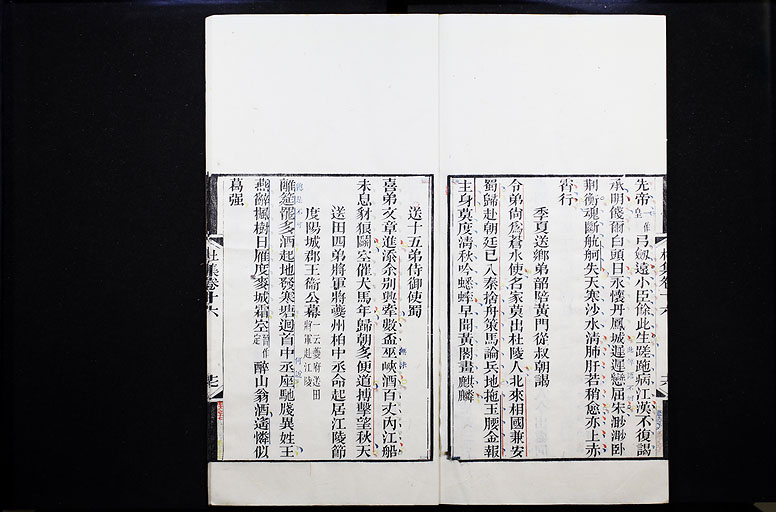 先帝一作皇弓劔遠小臣餘此生蹉跎病江漢不復謁
承明饒爾白頭日永懷丹鳳城遲遲戀屈宋渺渺卧
荆衡魂斷航舸失天寒沙水清肺肝若稍愈亦上赤
霄行
季夏送鄉弟韶陪黃門從叔朝謁
令弟尚爲蒼水使名家莫出杜陵人比來相國兼安
蜀歸赴朝廷已入秦捨舟策馬論兵地拖玉腰金報
主身莫度清秋吟蟋蟀早聞黃閣畫麒麟
送十五弟侍御使蜀
喜弟文章進添余別興牽數盃巫峽酒百丈內江船
未息豺狼鬭空催犬馬年歸朝多便道搏擊望秋天
送田四弟將軍將夔州柏中丞命起居江陵節
度陽城郡王衞公幕一云夔府送田將軍赴江陵
離筵罷多酒起地發寒塘迴首中丞座馳牋異姓王
燕辭楓樹日雁度麥城霜空一作定醉山翁酒遙憐似
葛强
杜集卷十六